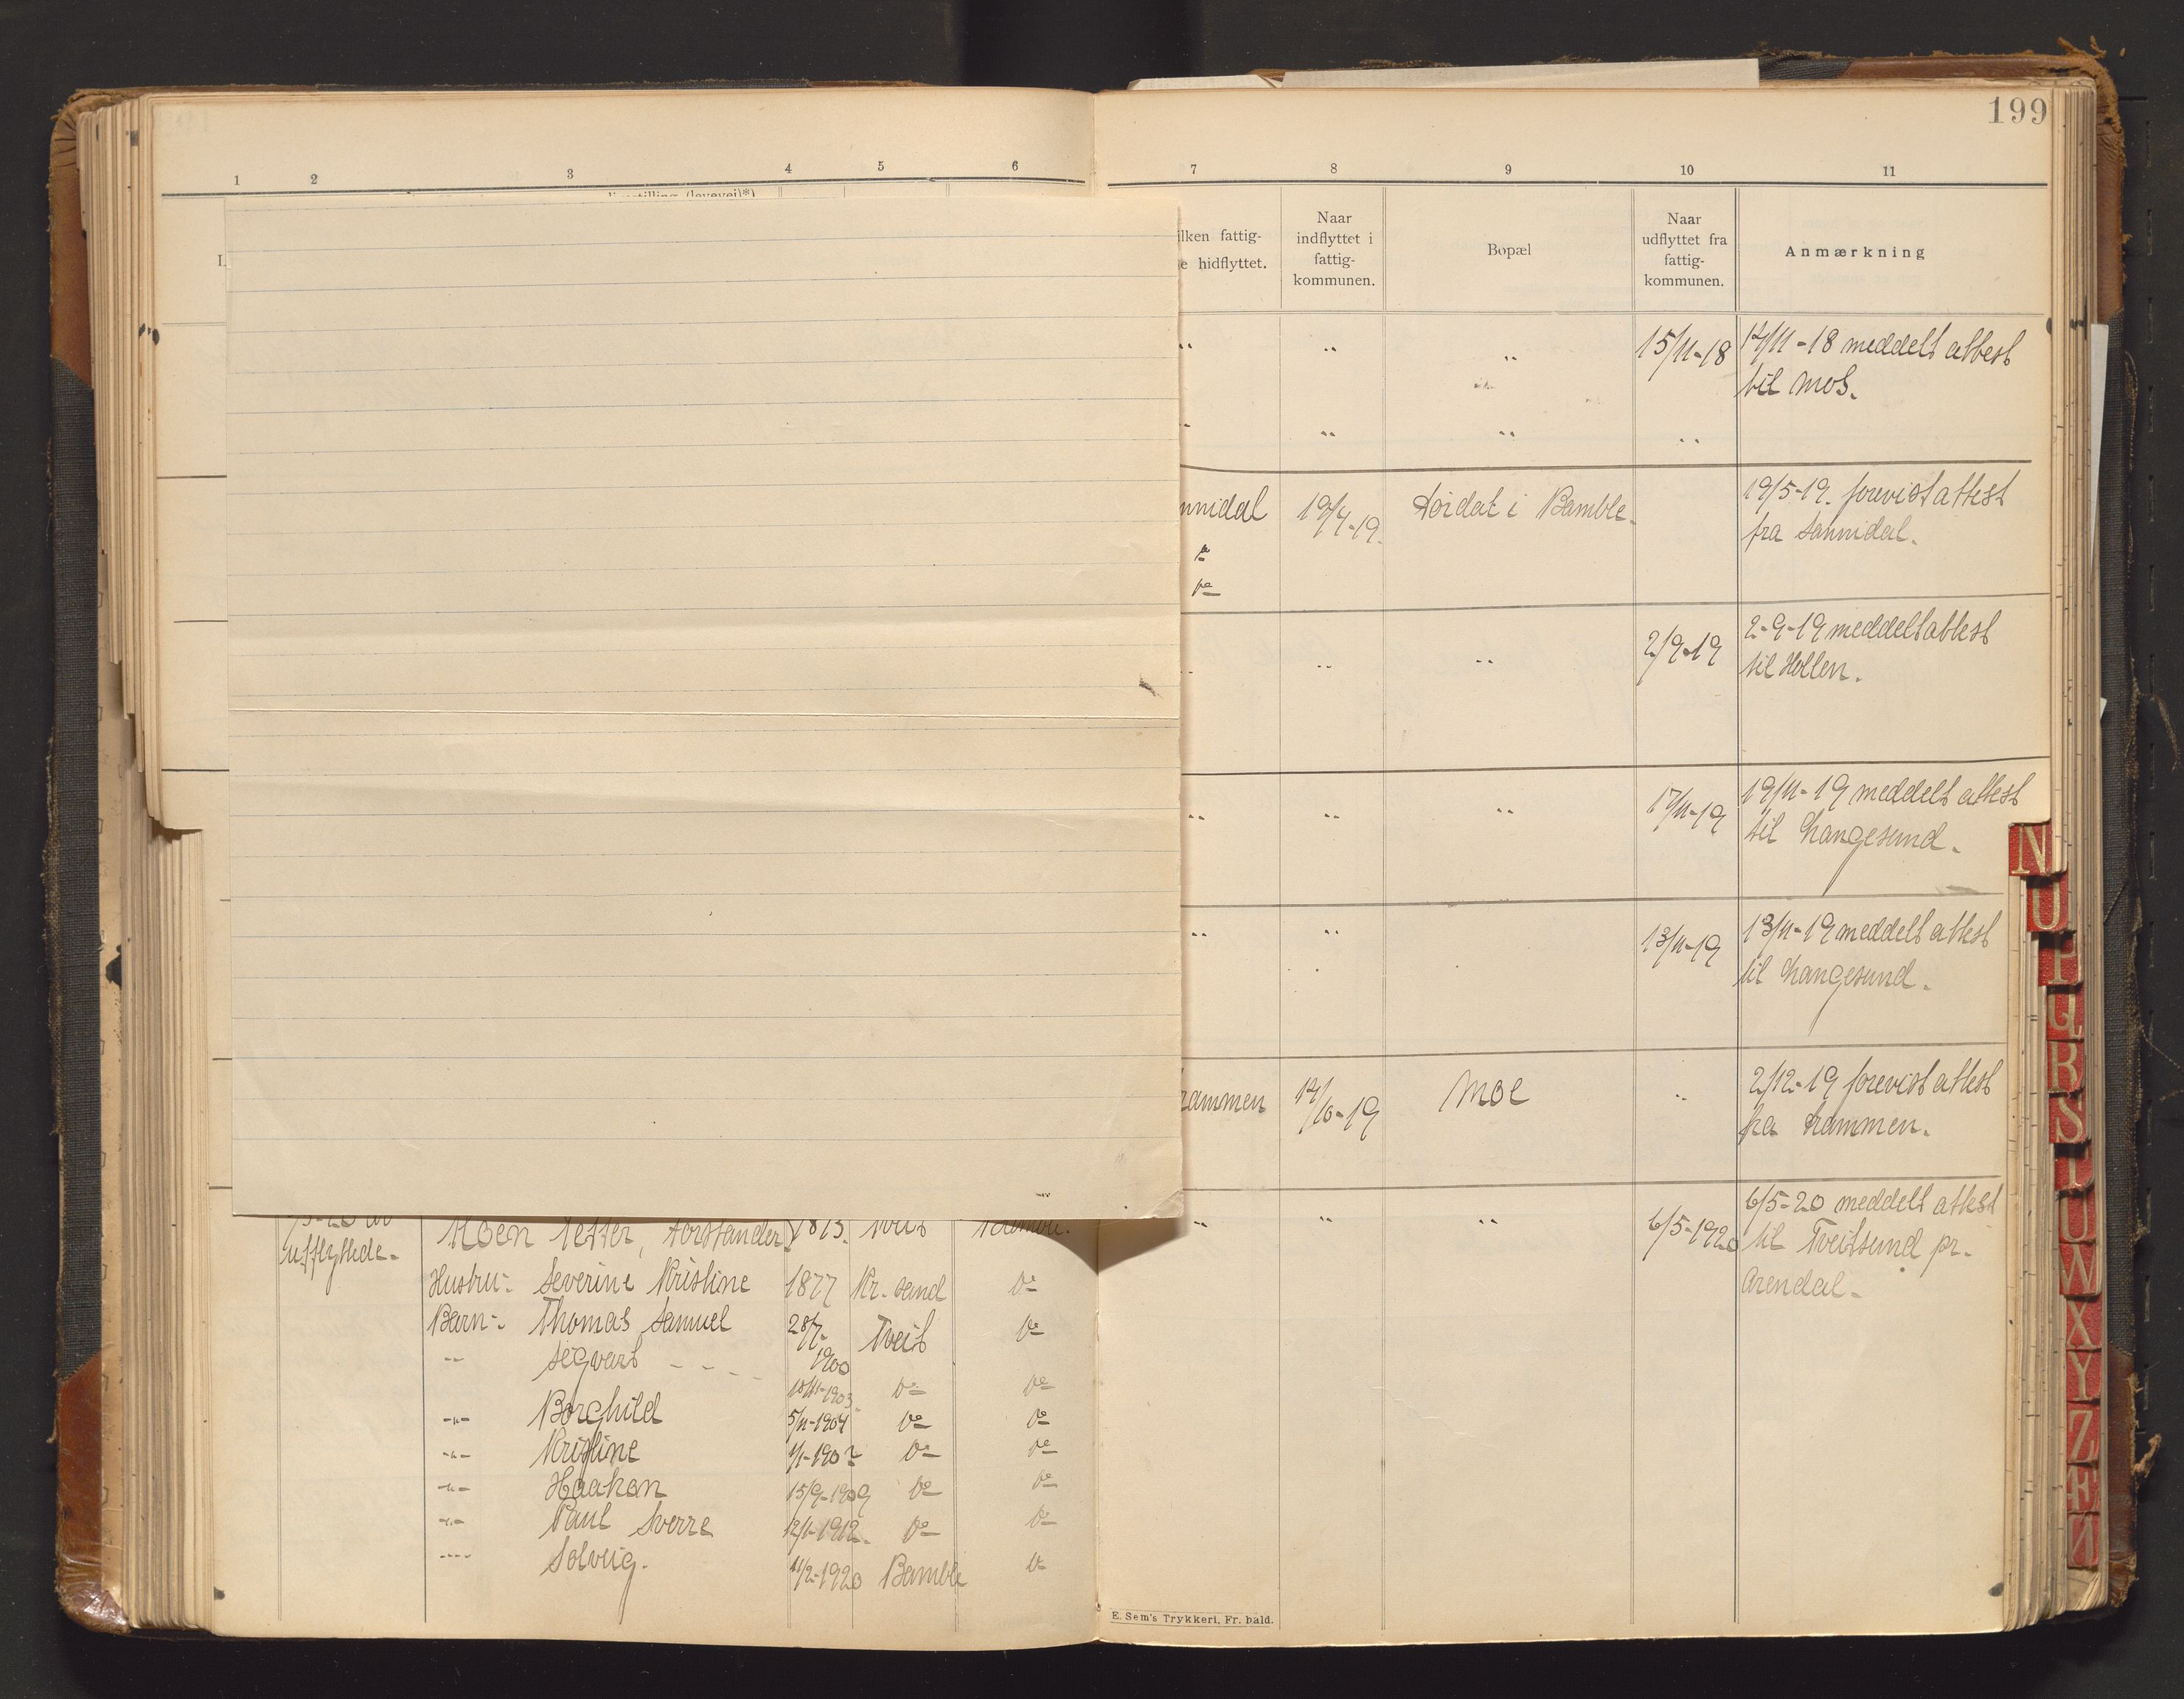 199
1 2 3 4 5 6 7 8 9 10 11
ilken fattig-
e hidflyttet.
Naar
indflyttet i
fattig-
kommunen.
Bopæl
Naar
udflyttet fra
fattig-
kommunen.
Anmærkning
" " " 15/11-18 14/11-18 meddelt attest
til Mos.
" " " "
nnidal 19/4-19. i Bamble- 19/5-19. forevist attest
fra Sannidal.
do
do
" " " 2/9-19 2-9-19 meddelt attest
til Hollen.
" " " 17/11-19 19/11-19 meddelt attest
til Langesund.
" " 13/11-19 13/11-19 meddelt attest
til Langesund.
rammen 14/10-19 Moe " 2/12-19 forevist attest
fra Drammen.
Moen Petter, Forstander 1873. Tveit
" " " 6/5-1920 6/5-20 meddelt attest
til Tveitsund pr.
Arendal.
utflyttede-
Hustru: Severine Kristine 1877 Kr. sand do
Barn: Thomas Samuel 28/7- Tveit do
" Segvart - - - 1900
10/11-1903. do do
-"- Borghild 5/11-1904 do do
-"- Kristine 1/1-1907 do do
-"- Haakon 15/9-1909 do do
-"- Paul Sverre 12/1-1912. do do
-"- Solveig. 11/2-1920 Bamble do
E. Sem's Trykkeri, Fr. hald.
N
O
P
Q
R
S
T
U
W
X
Y
Z
Æ
Ø